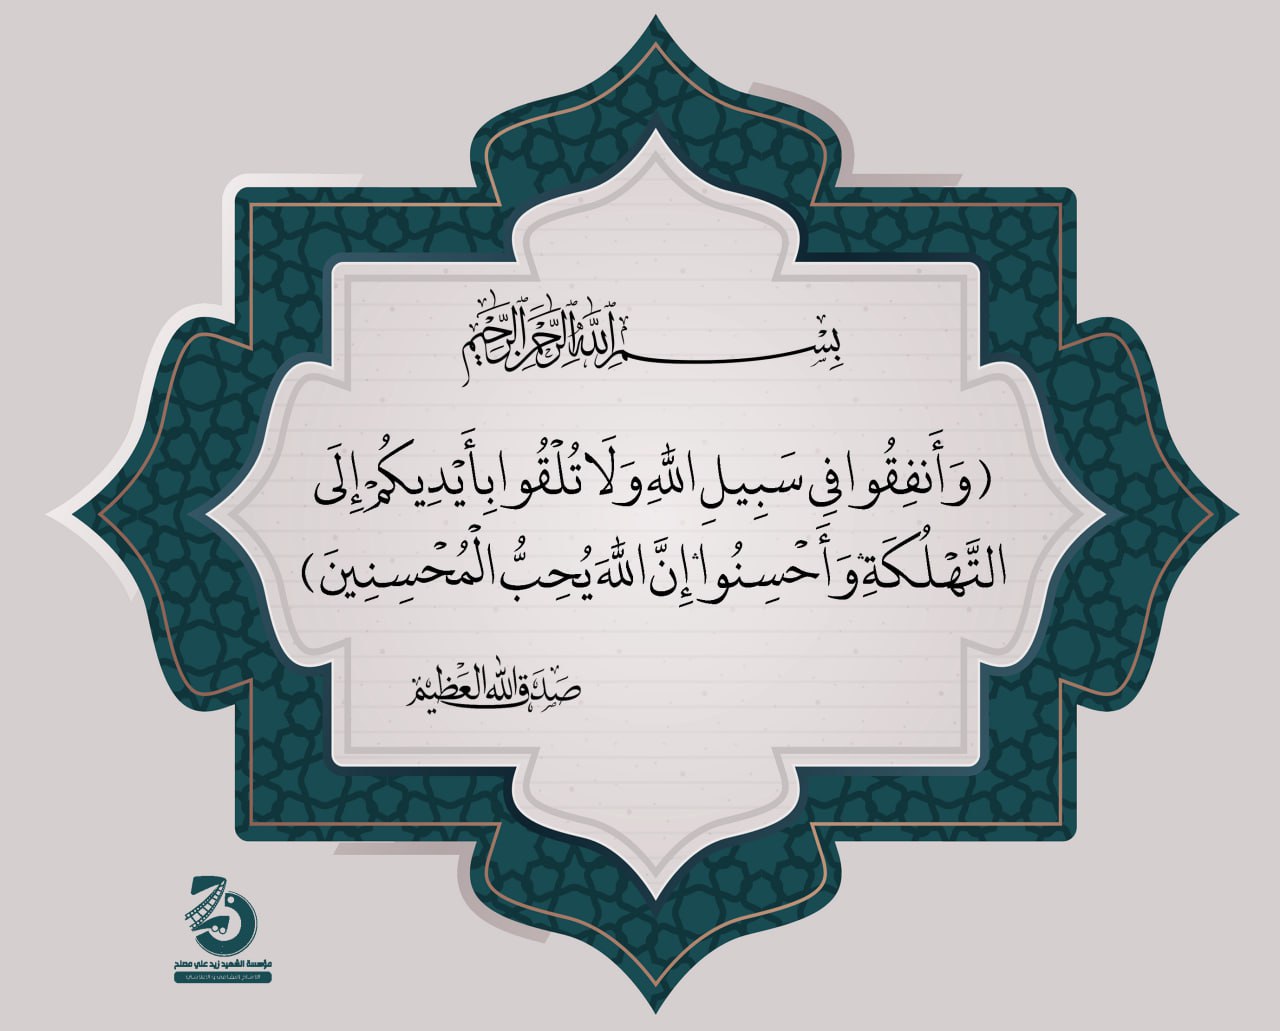 بِسْمِ اللَّهِ الرَّحْمَٰنِ الرَّحِيمِ
(وَأَنفِقُوا فِي سَبِيلِ اللَّهِ وَلَا تُلْقُوا بِأَيْدِيكُمْ إِلَى
التَّهْلُكَةِ ۛ وَأَحْسِنُوا ۛ إِنَّ اللَّهَ يُحِبُّ الْمُحْسِنِينَ)
صَدَقَ اللَّهُ الْعَظِيمُ
مؤسسة الشهيد زيد علي مصلح